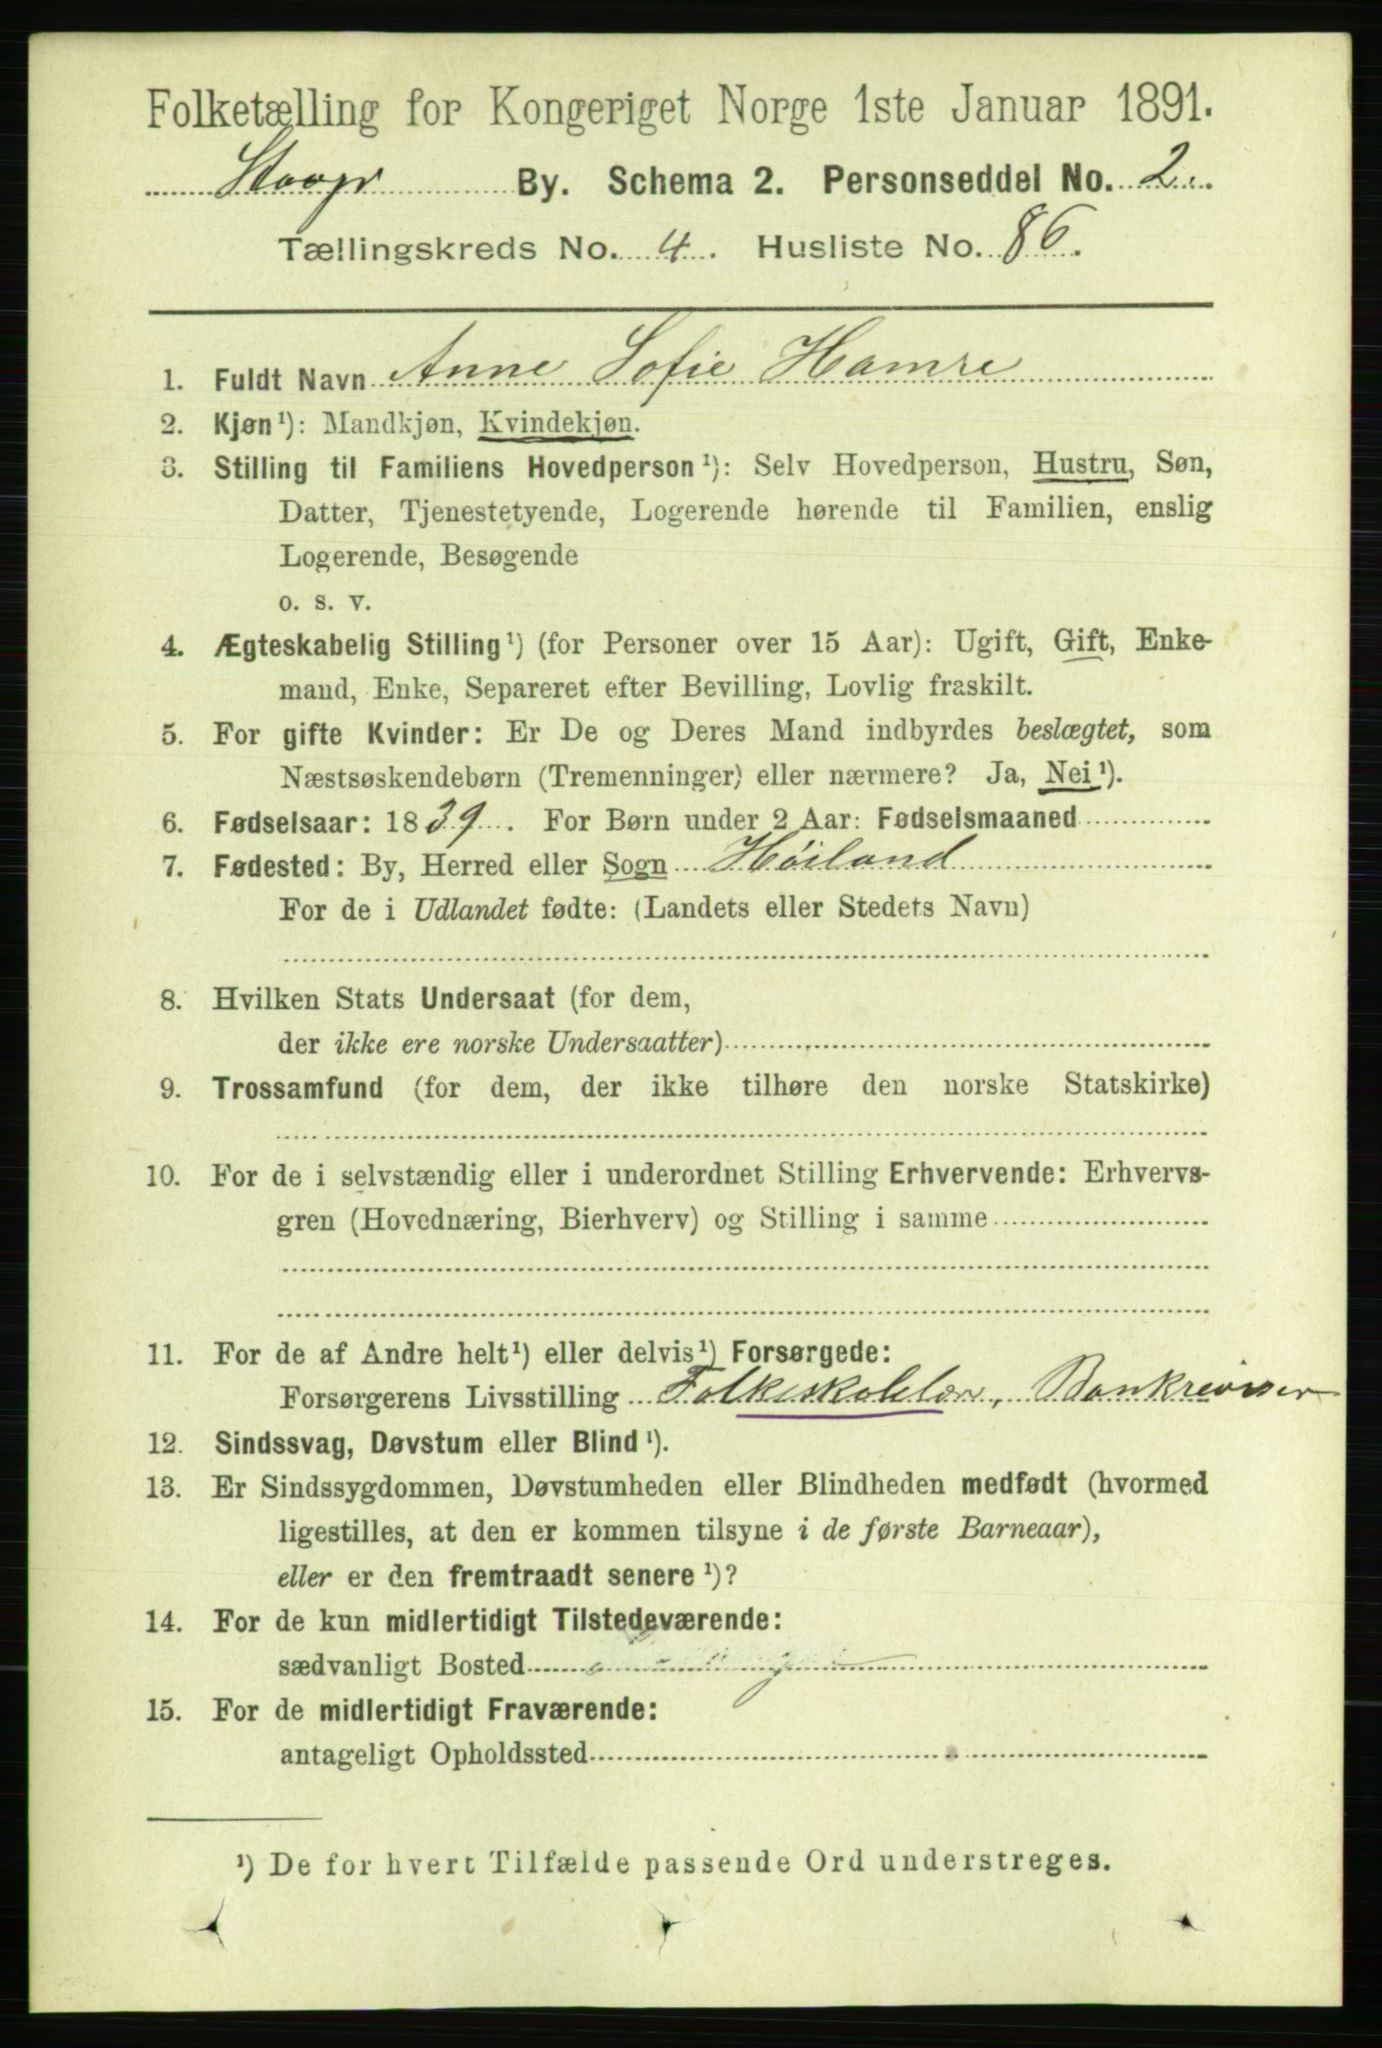 Folketælling for Kongeriget Norge 1ste Januar 1891.
By. Schema 2. Personseddel No. 2.
Tællingskreds No. 4. Husliste No. 86.
1. Fuldt Navn Anne Sofie Hamre
2. Kjøn¹): Mandkjøn, Kvindekjøn.
3. Stilling til Familiens Hovedperson¹): Selv Hovedperson, Hustru, Søn,
Datter, Tjenestetyende, Logerende hørende til Familien, enslig
Logerende, Besøgende
o. s. v.
4. Ægteskabelig Stilling¹) (for Personer over 15 Aar): Ugift, Gift, Enke-
mand, Enke, Separeret efter Bevilling, Lovlig fraskilt.
5. For gifte Kvinder: Er De og Deres Mand indbyrdes beslægtet, som
Næstsøskendebørn (Tremenninger) eller nærmere? Ja, Nei¹).
6. Fødselsaar: 1839. For Børn under 2 Aar: Fødselsmaaned
7. Fødested: By, Herred eller Sogn Höiland
For de i Udlandet fødte: (Landets eller Stedets Navn)
8. Hvilken Stats Undersaat (for dem,
der ikke ere norske Undersaatter)
9. Trossamfund (for dem, der ikke tilhøre den norske Statskirke)
10. For de i selvstændig eller i underordnet Stilling Erhvervende: Erhvervs-
gren (Hovednæring, Bierhverv) og Stilling i samme
11. For de af Andre helt¹) eller delvis¹) Forsørgede:
Forsørgerens Livsstilling Folkeskolelær, Bankrevisor
12. Sindssvag, Døvstum eller Blind¹).
13. Er Sindssygdommen, Døvstumheden eller Blindheden medfødt (hvormed
ligestilles, at den er kommen tilsyne i de første Barneaar),
eller er den fremtraadt senere¹)?
14. For de kun midlertidigt Tilstedeværende:
sædvanligt Bosted
15. For de midlertidigt Fraværende:
antageligt Opholdssted
¹) De for hvert Tilfælde passende Ord understreges.